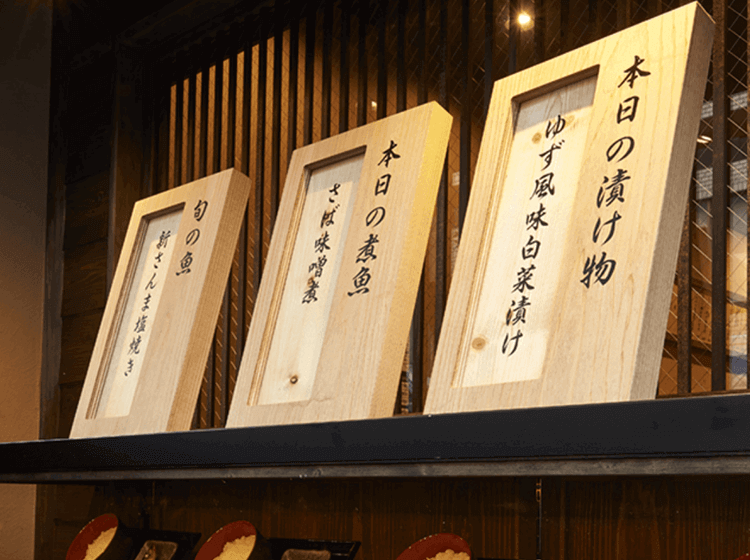 本日の漬け物
ゆず風味白菜漬け
本日の煮魚
さば味噌煮
旬の魚
新さんま塩焼き